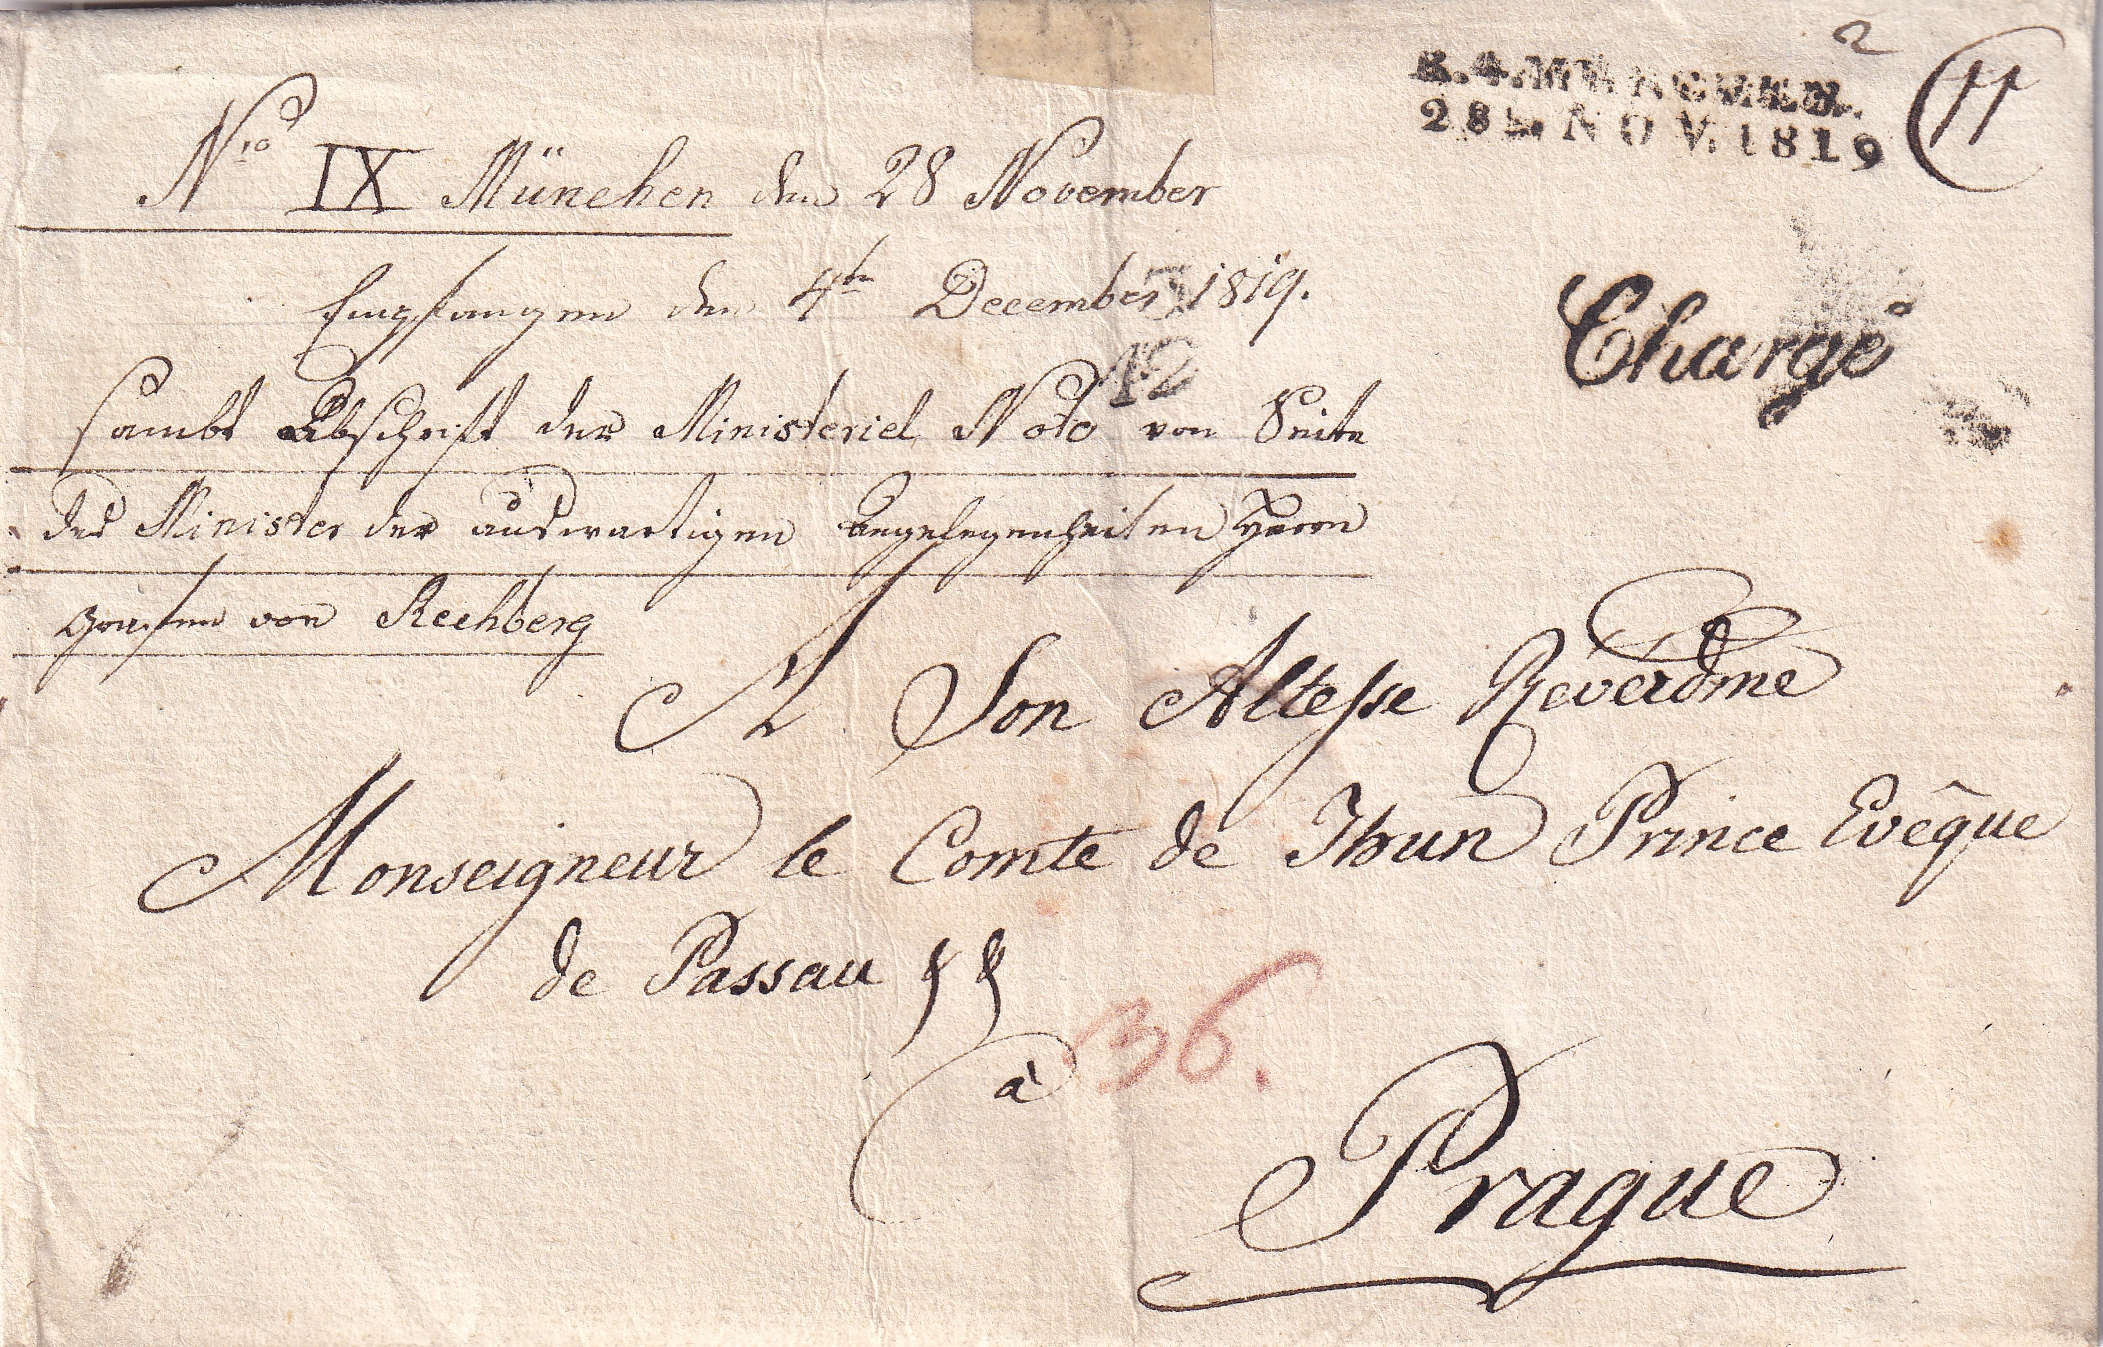 R.4.MÜNCHEN.
28. NOV. 1819
2
Nro IX München den 28 November
Empfangen den 4ten December 1819.
12
Chargé
sambt Abschrift der Ministeriel Note von Seite
des Minister der auswartigen Angelegenheiten Herrn
Grafen von Rechberg
A Son Altesse Reverdme
Monseigneur le Comte de Thun Prince Evêque
de Passau
à
36.
Prague